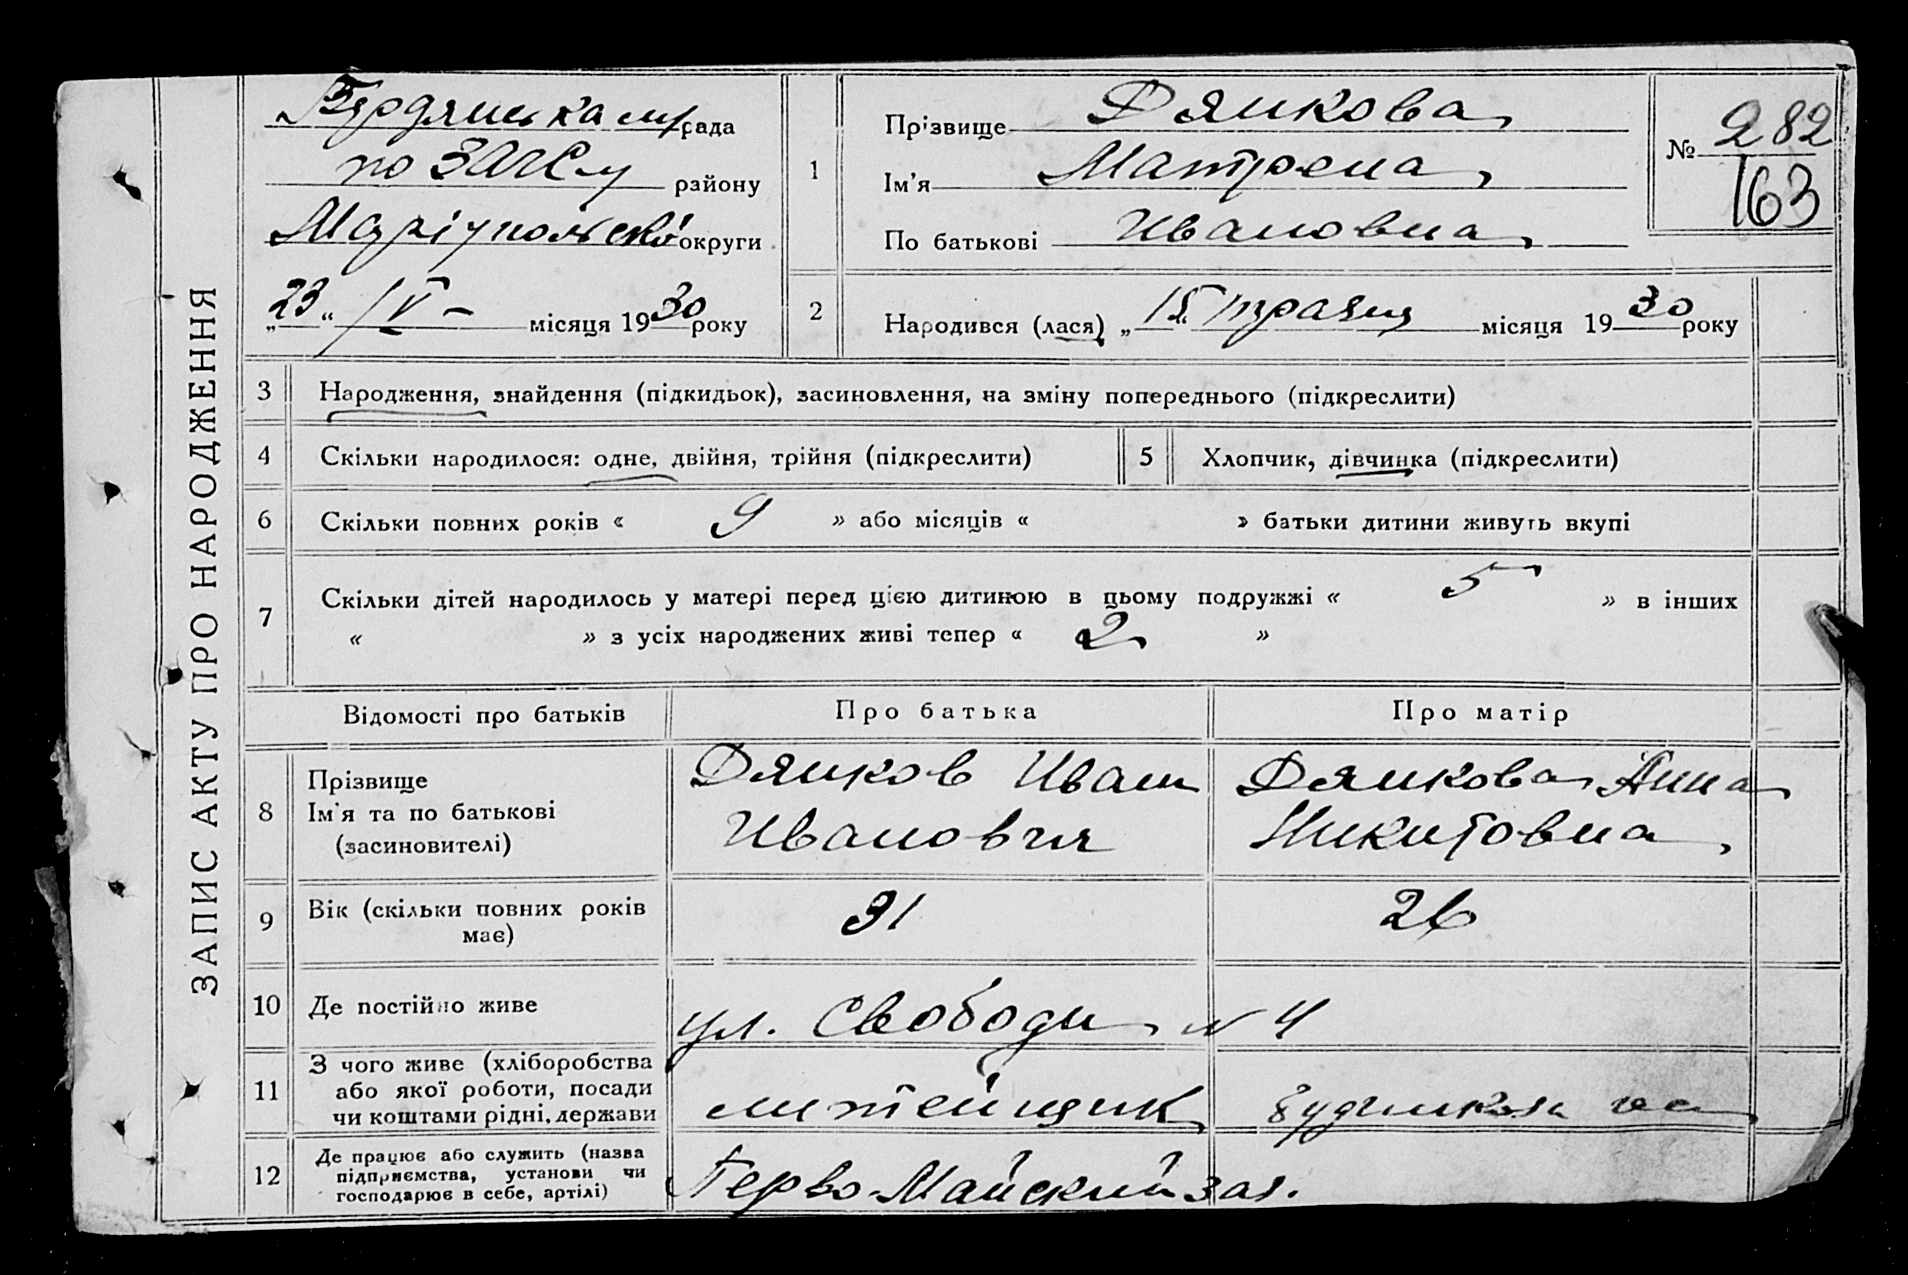 ЗАПИС АКТУ ПРО НАРОДЖЕННЯ
Бердянська м/рада
по ЗАГСу району
Маріупольської округи
„23“ IV – місяця 1930 року
1
Прізвище Дяжкова
Ім'я Матрена
По батькові Ивановна
№ 282
163
2
Народився (лася) „15“ травня місяця 1930 року
3 Народження, знайдення (підкидьок), засиновлення, на зміну попереднього (підкреслити)
4 Скільки народилося: одне, двійня, трійня (підкреслити)
5 Хлопчик, дівчинка (підкреслити)
6 Скільки повних років « 9 » або місяців « » батьки дитини живуть вкупі
7 Скільки дітей народилось у матері перед цією дитиною в цьому подружжі « 5 » в інших
« » з усіх народжених живі тепер « 2 »
Відомості про батьків Про батька Про матір
8 Прізвище
Ім'я та по батькові
(засиновителі)
Иван
Ивановия
Анна
Никитовна
9 Вік (скільки повних років
має)
31 26
10 Де постійно живе
ул. Свободи N 4
11 З чого живе (хліборобства
або якої роботи, посади
чи коштами рідні, держави
литейщик
12 Де працює або служить (назва
підприємства, установи чи
господарює в себе, артілі)
Перво-Майский зав.